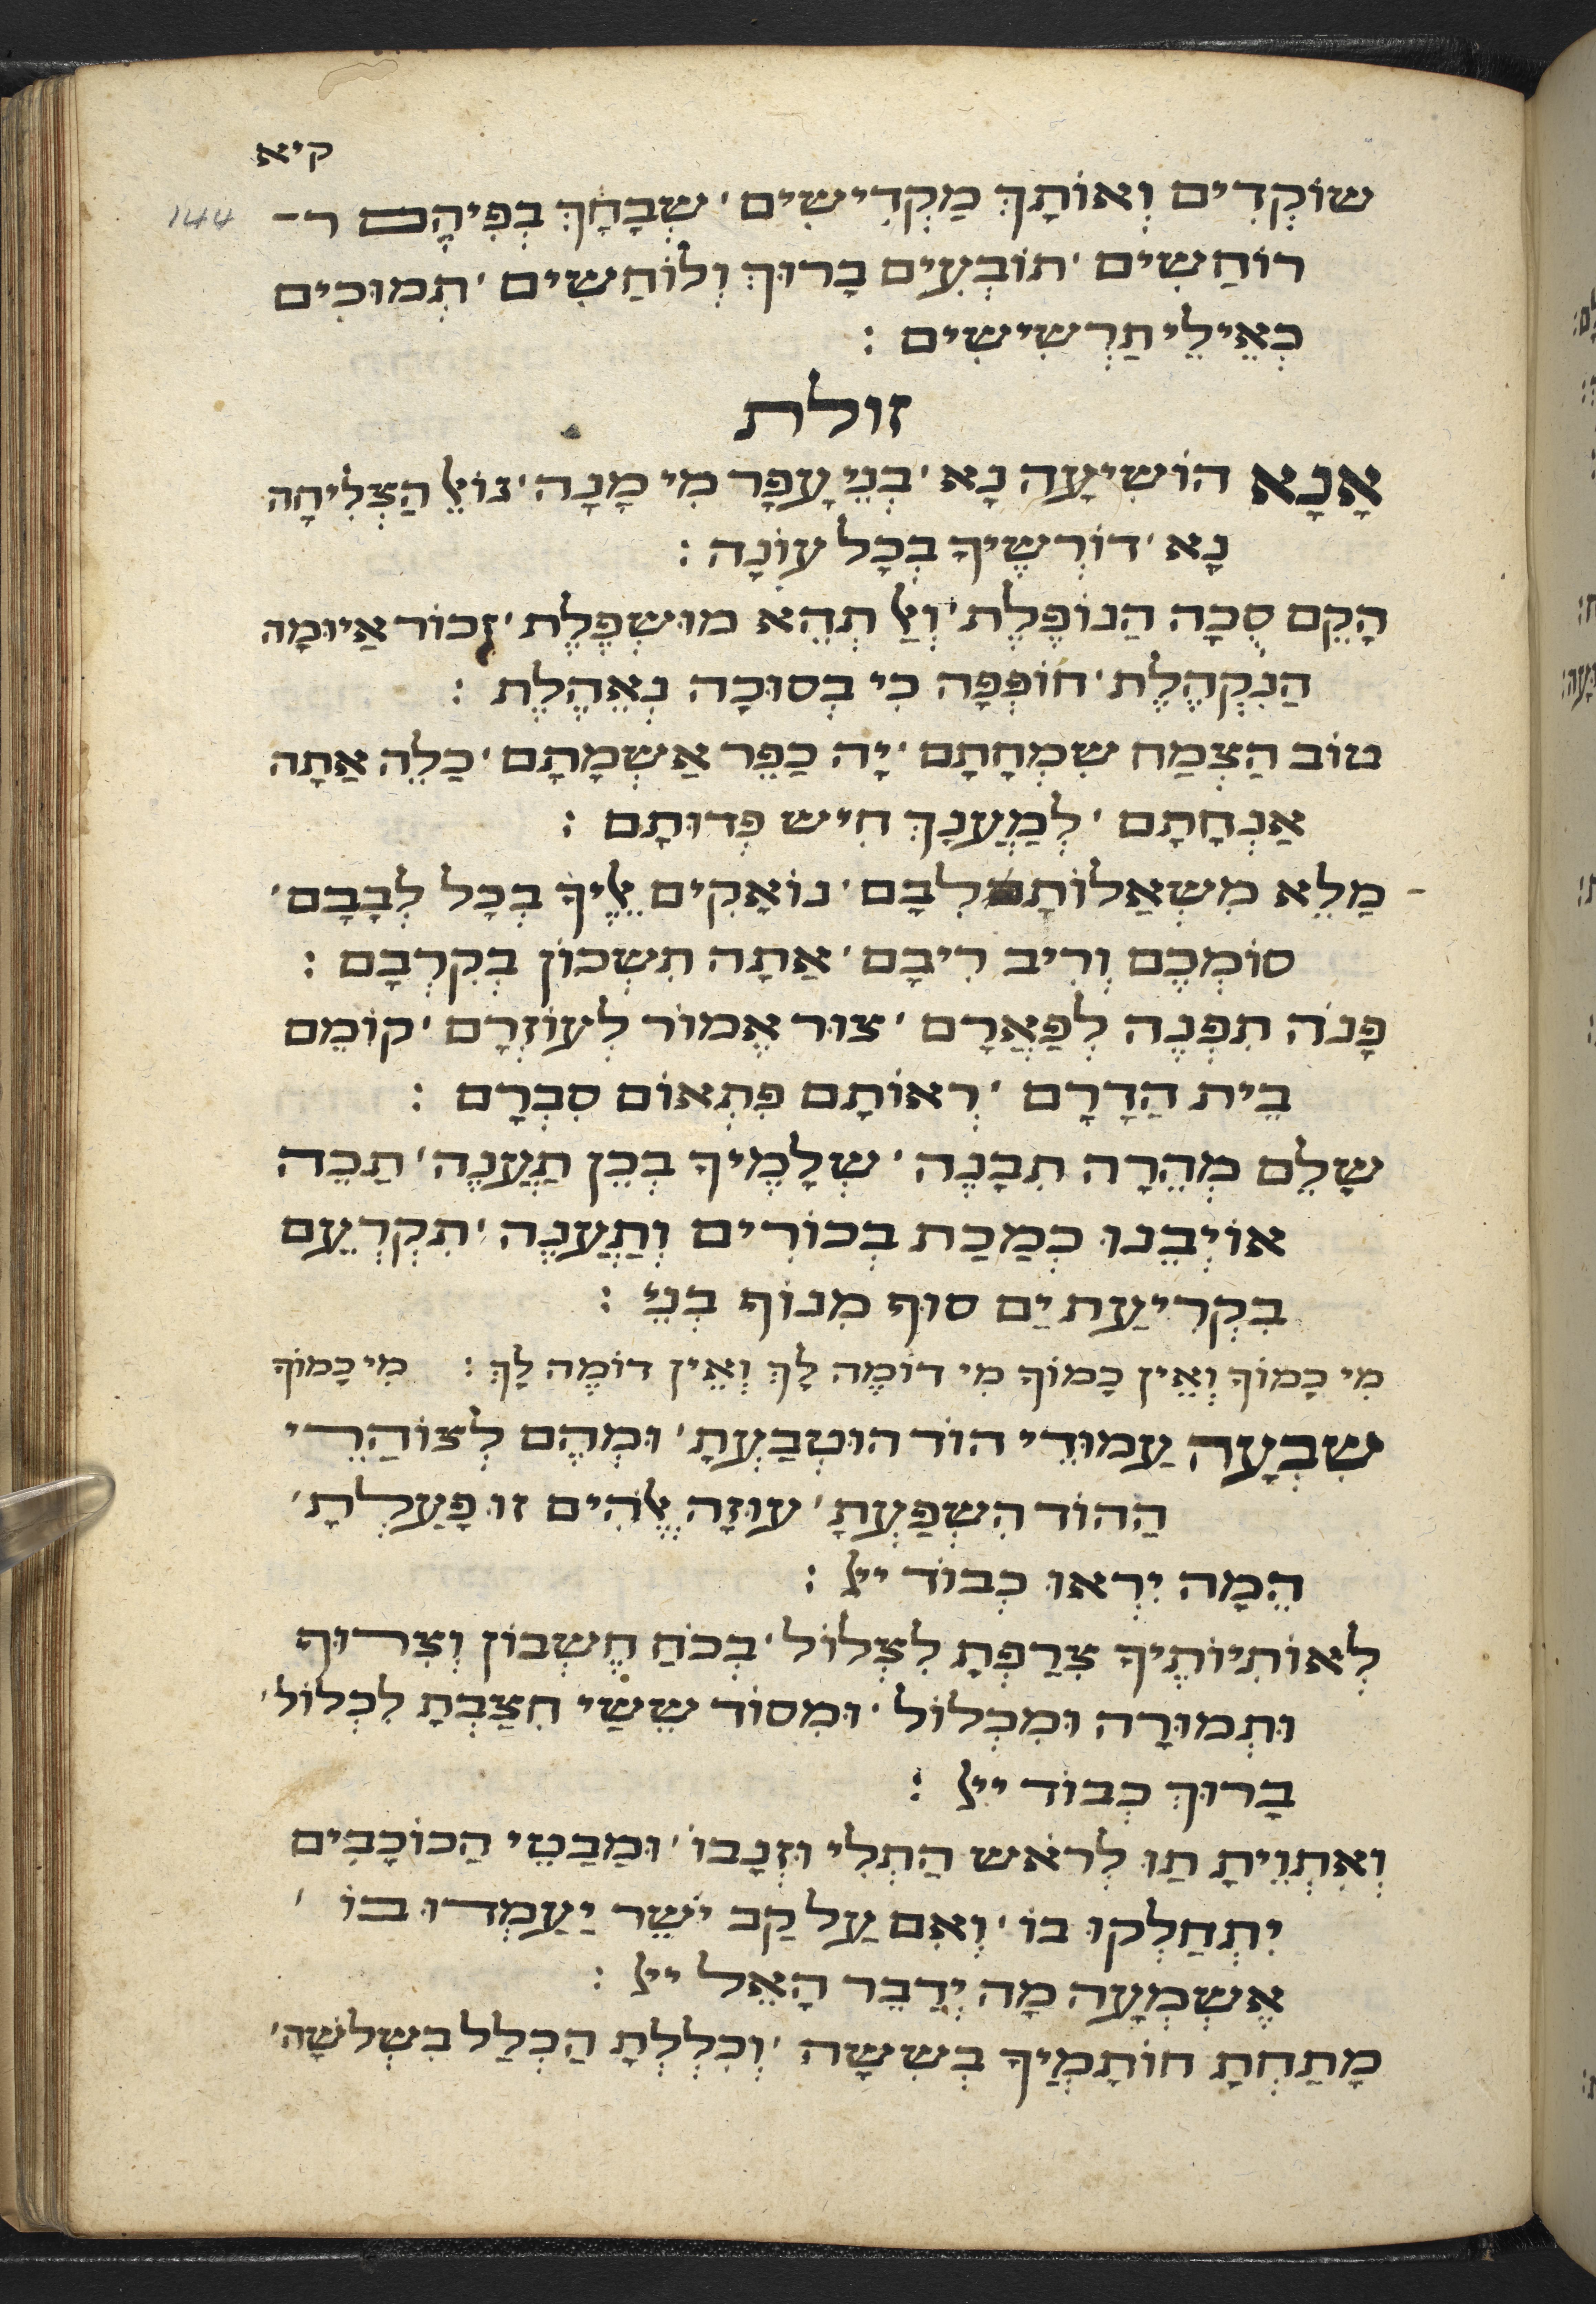 קיא
144
שוֹקְדִים וְאוֹתָךְ מַקְדִישִׁים ׳ שְׁבָחָךְ בְּפִיהָם ר־
רוֹחַשִׁים ׳ תּוֹבְעִים בָּרוּךְ וְלוֹחַשִׁים ׳ תְּמוּכִים
כְּאֵילֵי תַרְשִׁישִׁים :
זולת
אָנָא הוֹשִׁיעָה נָא ׳ בְּנֵי עָפָר מִי מָנָה ׳ גּוֹאֵל הַצְלִיחָה
נָא ׳ דּוֹרְשֶׁיךָ בְּכָל עוֹנָה :
הָקֵם סֻכָּה הַנּוֹפֶלֶת ׳ וְאַל תְּהֵא מוּשְׁפֶלֶת ׳ זְכוֹר אַיוּמָה
הַנִקְהֶלֶת ׳ חוֹפְפָה כִּי בְסוּכָּה נְאֵהֶלֶת :
טוֹב הַצְמַח שִׂמְחָתָם ׳ יָה כַפֵּר אַשְׁמָתָם ׳ כַּלֵּה אַתָּה
אַנְחָתָם ׳ לְמַעֲנָךְ חִישׁ פְּדוּתָם :
מַלֵא מִשְׁאַלוֹת לִבָּם ׳ נוֹאָקִים אֵלֶיךָ בְּכָל לְבָבָם ׳
סוֹמְכֶם וְרִיב רִיבָם ׳ אַתָּה תִשְׁכּוֹן בְּקִרְבָּם :
פָּנֹה תִפְנֶה לְפַאֲרָם ׳ צוּר אֱמוֹר לְעוֹזְרָם ׳ קוֹמֵם
בֵּית הַדָרָם ׳ רְאוֹתָם פִּתְאוֹם סִבְרָם :
שָׁלֵם מְהֵרָה תִבָּנֶה ׳ שְׁלָמֶיךָ בְּכֵן תַּעֲנֶה ׳ תַּכֵּה
אוֹיְבֵנוּ כְּמַכַּת בְּכוֹרִים וְתַעֲנֶה ׳ תִּקְרְעֵם
בִקְרִיעַת יַם סוּף מִנוֹף בְּנֵי :
מִי כָמוֹךָ וְאֵין כָּמוֹךָ מִי דוֹמֶה לָךְ וְאֵין דּוֹמֶה לָךְ : מִי כָמוֹךָ
שִׁבְעָה עַמוּדֵי הוֹד הוּטְבַעְתָּ ׳ וּמְהֶם לְצוֹהַרֵי
הַהוֹד הִשְׁפַּעְתָּ ׳ עוּזָה אֱלֹהִים זוּ פָּעַלְתָּ ׳
הֵמָּה יִרְאוּ כְּבוֹד ייל :
לְאוֹתִיוֹתֶיךָ צֵרַפְתָּ לִצְלוֹל ׳ בְּכֹחַ חֶשְׁבּוֹן וְצֵרוּף
וּתְמוּרָה וּמִכְלוֹל ׳ וּמִסּוֹד שֵׁשַׁי חִצַבְתָּ לִכְלוֹל ׳
בָּרוּךְ כְּבוֹד ייל :
וְאִתְוֵיתָ תַּו לְרֹאשׁ הַתְּלִי וּזְנָבוֹ ׳ וּמַבָּטֵי הַכּוֹכָבִים
יִתְחַלְּקוּ בוֹ ׳ וְאִם עַל קַב יֹשֶׁר יַעַמְדוּ בוֹ ׳
אֶשְׁמְעָה מָה יְדַבֵּר הָאֵל ייל :
מָתַחְתָּ חוֹתָמֶיךָ בְשִׁשָּׁה ׳ וְכִלְלְתָּ הַכְּלַל בִּשְׁלשָׁה ׳